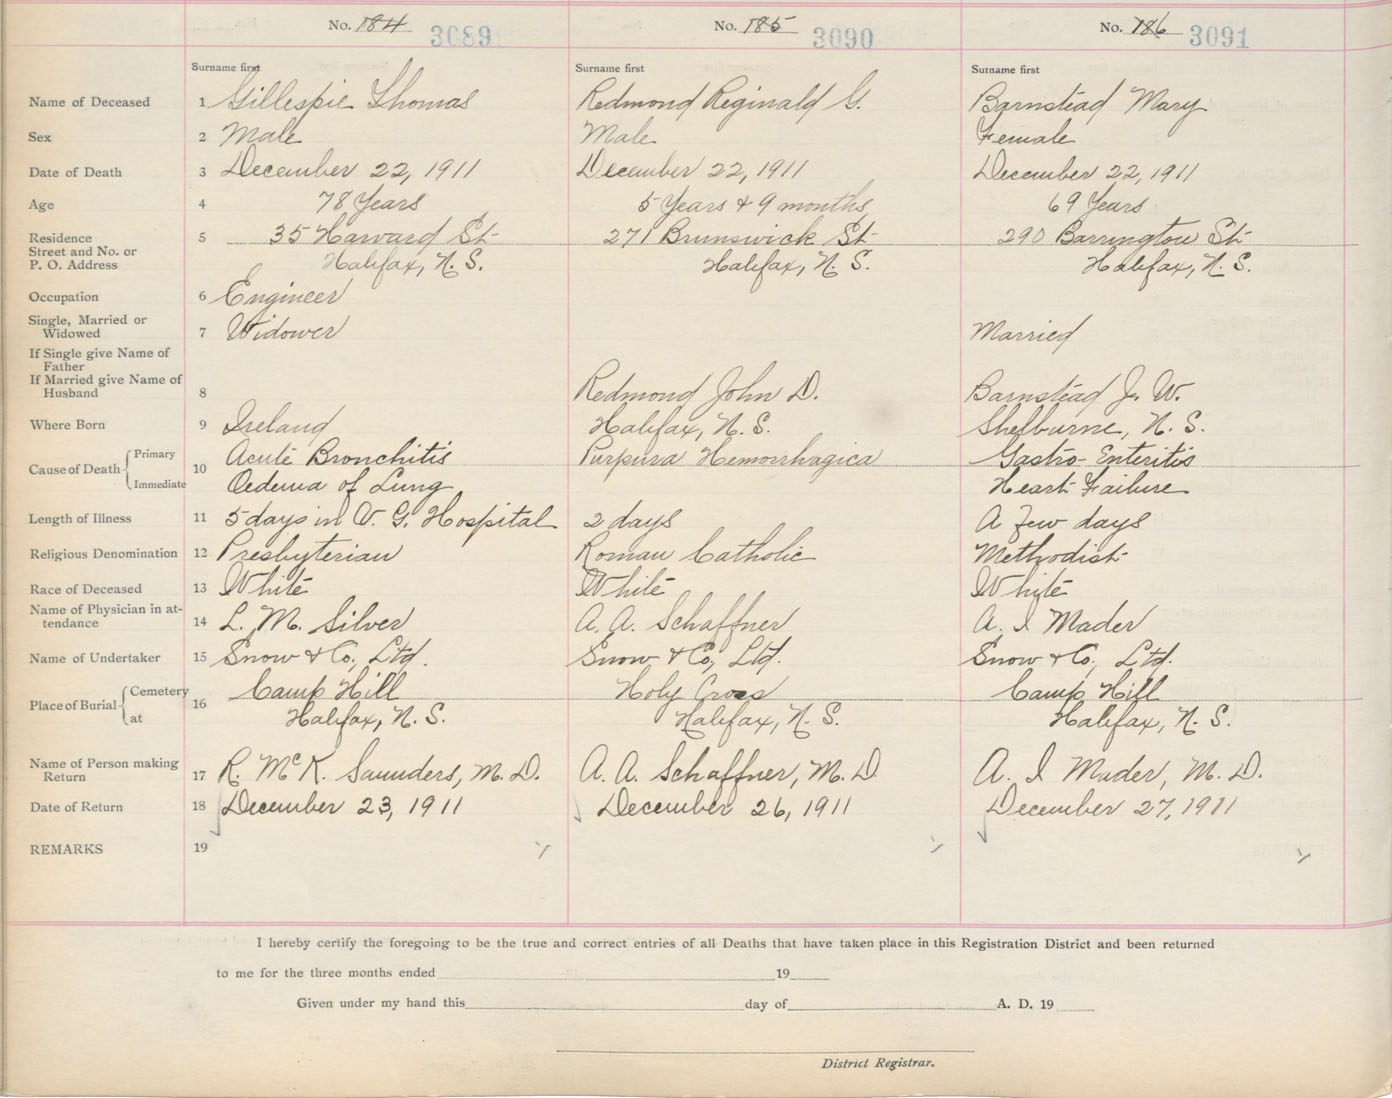 No. 184 3089 No. 185 3090 No. 186 3091
Surname first Surname first Surname first
Name of Deceased 1 Gillespie Thomas Redmond Reginald G. Barnstead Mary
Sex 2 Male Male Female
Date of Death 3 December 22, 1911 December 22, 1911 December 22, 1911
Age 4 78 Years 5 Years & 9 months 69 Years
Residence 5 35 Harvard St 271 Brunswick St 290 Barrington St
Street and No. or
P. O. Address Halifax, N. S. Halifax, N. S. Halifax, N. S.
Occupation 6 Engineer
Single, Married or
Widowed 7 Widower Married
If Single give Name of
Father
If Married give Name of
Husband 8 Redmond John D. Barnstead J. W.
Where Born 9 Ireland Halifax, N. S. Shelburne, N. S.
Cause of Death 10 Primary Acute Bronchitis Purpura Hemorrhagica Gastro-Enteritis
Immediate Oedema of Lung Heart Failure
Length of Illness 11 5 days in V. G. Hospital 2 days A few days
Religious Denomination 12 Presbyterian Roman Catholic Methodist
Race of Deceased 13 White White White
Name of Physician in at-
tendance 14 L. M. Silver A. A. Schaffner A. I Mader
Name of Undertaker 15 Snow & Co., Ltd. Snow & Co., Ltd. Snow & Co., Ltd.
Place of Burial 16 Cemetery Camp Hill Holy Cross Camp Hill
at Halifax, N. S. Halifax, N. S. Halifax, N. S.
Name of Person making
Return 17 R. McK. Saunders, M. D. A. A. Schaffner, M. D. A. I Mader, M. D.
Date of Return 18 December 23, 1911 December 26, 1911 December 27, 1911
REMARKS 19
I hereby certify the foregoing to be the true and correct entries of all Deaths that have taken place in this Registration District and been returned
to me for the three months ended 19
Given under my hand this day of A. D. 19
District Registrar.